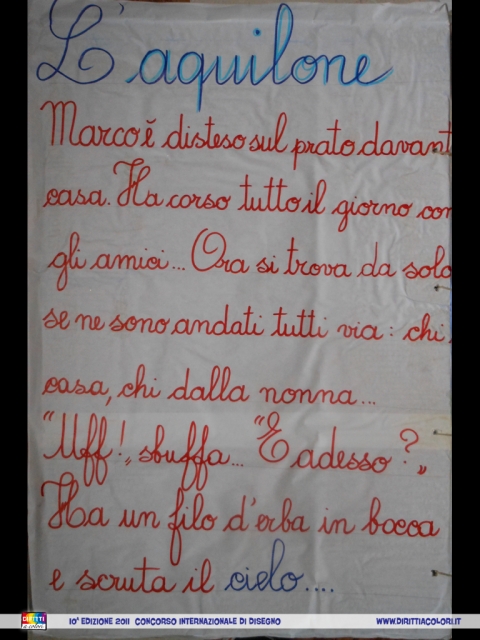 L'aquilone
Marco è disteso sul prato davant
casa. Ha corso tutto il giorno con
gli amici... Ora si trova da solo
se ne sono andati tutti via: chi
casa, chi dalla nonna...
"Uff!" sbuffa... "E adesso?"
Ha un filo d'erba in bocca
e scruta il cielo....
DIRITTI a colori
10ª EDIZIONE 2011 CONCORSO INTERNAZIONALE DI DISEGNO
WWW.DIRITTIACOLORI.IT